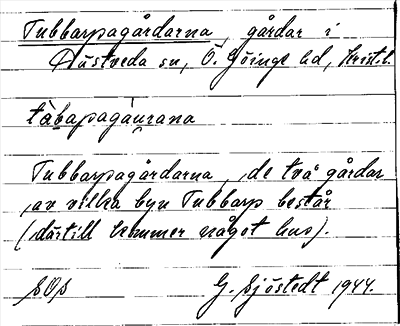 Tubbarpagårdarna, gårdar i
Hästveda sn, Ö. Göinge hd, Krist. l.
tàbapagàurana
Tubbarpagårdarna, de två gårdar
av vilka byn Tubbarp består
(därtill kommer något hus).
SOS G. Sjöstedt 1944.